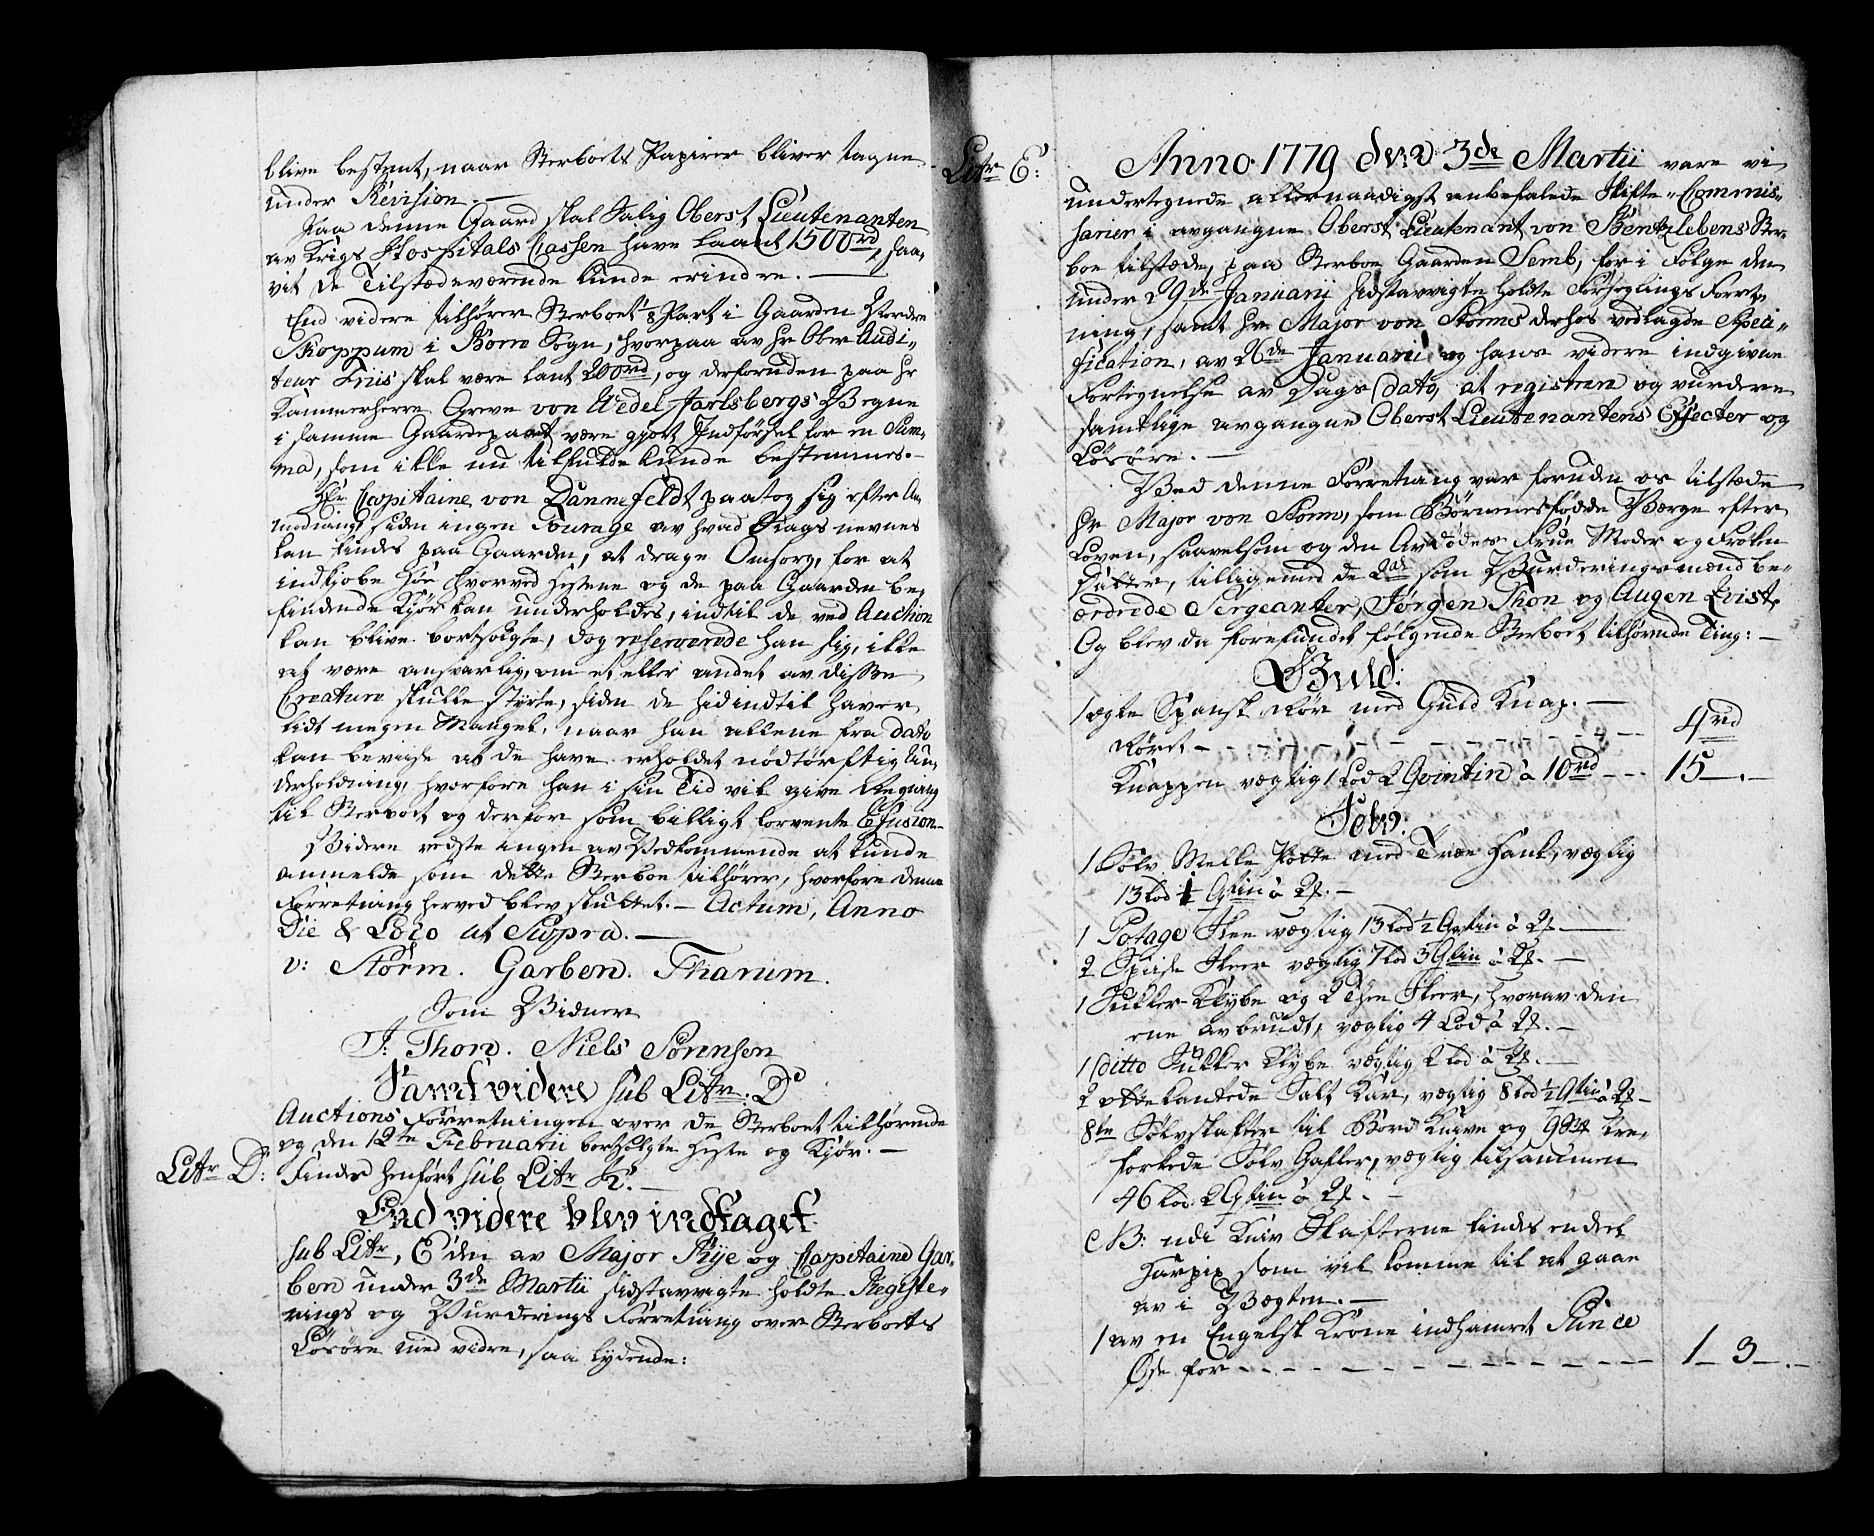 blive bestemt, naar Sterboets Papirer bliver tagne
under Revision. —
Paa denne Gaard skal Salig Oberst Lieutenanten
av Krigs Hospitals Cassen have laant 1500rd, saa-
vit de Tilstædeværende kunde erindre. —
End videre tilhører Sterboet 1/8 Part i Gaarden Nordre
Skoppum i Borre Sogn, hvorpaa av Hr Ober Audi-
teur Friis skal være lant 200rd, og derforuden paa Hr
Kammerherre Greve von Wedel Jarlsbergs Vegne
i samme Gaardepaart være gjort Indførsel for en Sum-
ma, som ikke nu tilfulde kunde bestemmes. —
Hr Capitaine von Dannefeldt paatog sig efter An-
modning, siden ingen Fourage av hvad Slags nevnes
kan findes paa Gaarden, at drage Omsorg, for at
indkjøbe Høe hvorved Hestene og de paa Gaarden be-
findende Kjør kan underholdes, indtil de ved Auction
kan blive bortsolgte, dog reserverede han sig, ikke
at være ansvarlig, om et eller andet av disse
Creature skulle styrte, siden de hidindtil haver
lidt megen Mangel, naar han allene fra dato
kan bevise at de have erholdet nødtørftig Un-
derholdning, hvorfore han i sin Tid vil give Regning
til Sterboet og derfor som billigt forvente Refusion —
Videre vidste ingen av Vedkommende at kunde
anmelde som dette Sterboe tilhører, hvorfore denne
Forretning herved blev sluttet. — Actum, Anno
Die & Loco ut Supra. —
v: Storm. Garben. Tharum.
Som Vidner
J: Thon. Niels Sørensen
Samt videre sub Litr. D
Auctions Forretningen over de Sterboet tilhørende
og den 12te Februarii bortsolgte Heste og Kjør. —
Litr D: Findes henført sub Litr K. —
End videre blev indtaget
sub Litr, E den av Major Rye og Capitaine Gar-
ben under 3de Martii sidstavvigte holdte Registe-
rings og Vurderings Forretning over Sterboets
Løsøre med videre, saa lydende:
Litr E:
Anno 1779 den 3de Martii vare vi
undertegnede allernaadigst anbefalede Skifte-Commis-
sarier i avgangne Oberst Lieutenant von Bentzlebens Ster-
boe tilstæde, paa Sterboe Gaarden Semb, for i Følge den
under 29de Januarij sidstavvigte holdte Forseglings Forret-
ning, samt Hr Major von Storms derhos vedlagde Speci-
fication, av 26de Januarii og hans videre indgivne
Fortegnelse av Dags dato, at registrere og vurdere
samtlige avgangne Oberst Lieutenantens Effecter og
Løsøre. —
Ved denne Forretning var foruden os tilstæde
Hr Major von Storm, som Børnenes fødde Værge efter
Loven, saavelsom og den Avdødes Frue Moder og Frøken
Datter, tilligemed de 2de som Vurderingsmænd be-
ordrede Sergeanter, Jørgen Thon og Augen Qvist.
Og blev da forefundet følgende Sterboet tilhørende Ting: —
Guld:
1 ægte Spansk Rør med Guld Knap. —
Røret — — — 4rd
Knappen vægtig 1 Lod 2 Qvintin à 10rd — 15 —.—
Sølv:
1 Sølv Melke Potte med Træe Hank, vægtig
13 lod 1 Qtin à
1 Potage Skee vægtig 13 lod 1/2 Qvtin à
2 Spise Skeer vægtig 7 lod 3 Qtin à
1 Sukker Klybe og 2 Thee Skeer, hvorav den
ene avbrudt, vægtig 4 Lod à
1 Ditto Sukker Klybe vægtig 2 lod à
2 ottekantede Salt Kar, vægtig 8 lod 1/2 Qtin à
8te Sølvskafter til Bord Knive og 9 tre-
forkede Sølv Gafler, vægtig tilsammen
46 lod 2 Qtin à
NB: udi Kniv Skafterne findes endeel
Harpix som vil komme til at gaae
av i Vægten. —
1 av en Engelsk Krone indhamret Punce
Øse for — — — 1 — 3 —.—